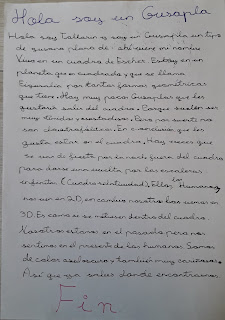 Hola soy un Gusapla
Hola soy Tallarin y soy un Gusapla un tipo
de gusano plano de ahi viene mi nombre
Vivo en un cuadro de Escher. Estoy en un
planeta que es cuadrado y que se llama
por tantas formas geometricas
que tiene. Hay muy pocos Gusaplas que les
gustaria salir del cuadro. Porque suelen ser
muy timidos y asustadizos. Pero por suerte no
son claustrofobicos. En conclusion que les
gusta estar en el cuadro. Hay veces que
se van de fiesta por la noche fuera del cuadro
para darse una vuelta por las escaleras
infinitas. (Cuadro relatividad). Ellos los Humanos
nos ven en 2D, en cambio nosotros los vemos en
3D. Es como si se metiesen dentro del cuadro.
Nosotros estamos en el pasado pero nos
sentimos en el presente de los humanos. Somos
de color y también muy cariñosos.
Asi que ya sabes donde encontrarnos
Fin